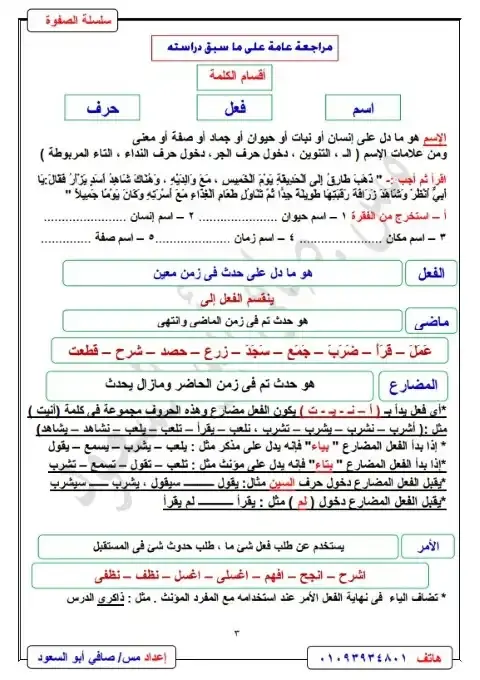 سلسلة الصفوة
مراجعة عامة على ما سبق دراسته
أقسام الكلمة
اسم
فعل
حرف
الإسم هو ما دل على إنسان أو نبات أو حيوان أو جماد أو صفة أو معنى
ومن علامات الإسم ( الـ ، التنوين ، دخول حرف الجر، دخول حرف النداء ، التاء المربوطة )
اقرأ ثم أجب :- " ذَهَبَ طَارِقُ إِلَى الْحَدِيقَةِ يَوْمَ الْخَمِيسِ ، مَعَ وَالِدَيْهِ . وَهُنَاكَ شَاهِدُ أَسَدٍ يَزْأَرُ فَقَالَ:يَا
أَبِي انْظُرْ وَشَاهَدَ زَرَافَة رَقَبَتِهَا طَوِيلَة جِدًّا ثُمَّ تَنَاوَلَ طَعَامَ الْغَدَاءِ مَعَ أُسْرَتِهِ وَكَانَ يَوْمًا جَمِيلًا "
أ – استخرج من الفقرة ١ – اسم حيوان .................. ٢ – اسم إنسان ..................
٣ – اسم مكان .................. ٤ – اسم زمان ..................٥ – اسم صفة ..................
الفعل
هو ما دل على حدث فى زمن معين
ينقسم الفعل إلى
ماضى
هو حدث تم فى زمن الماضى وانتهى
عَمَلَ – قرَأ – ضَرَبَ – جَمَع – سَجَدَ – زرع – حصد – شرح – قطعت
المضارع
هو حدث تم فى زمن الحاضر ومازال يحدث
*أي فعل يبدأ بـ ( أ – نـ – يـ – ت ) يكون الفعل مضارع وهذه الحروف مجموعة فى كلمة (أنيت )
مثل :( أشرب – نشرب – يشرب – تشرب ، نلعب – يقرأ – تلعب – يلعب – نشاهد – يشاهد)
* إذا بدأ الفعل المضارع " بياء" فإنه يدل على مذكر مثل : يلعب – يشرب – يسمع – يقول
*إذا بدأ الفعل المضارع "بتاء" فإنه يدل على مؤنث مثل : تلعب – تقول – تسمع – تشرب
*يقبل الفعل المضارع دخول حرف السين مثال: يقول ـــــــ سيقول ، يشرب ـــــ سيشرب
*يقبل الفعل المضارع دخول ( لم ) مثل : يقرأ ـــــــ لم يقرأ
الأمر
يستخدم عن طلب فعل شئ ما ، طلب حدوث شئ فى المستقبل
اشرح – انجح – افهم – اغسلى – اغسل – نظف – نظفى
* تضاف الياء فى نهاية الفعل الأمر عند استخدامه مع المفرد المؤنث . مثل : ذاكري الدرس
٣
هاتف ٠١٠٩٣٩٣٤٨٠١
إعداد مس/ صافي أبو السعود